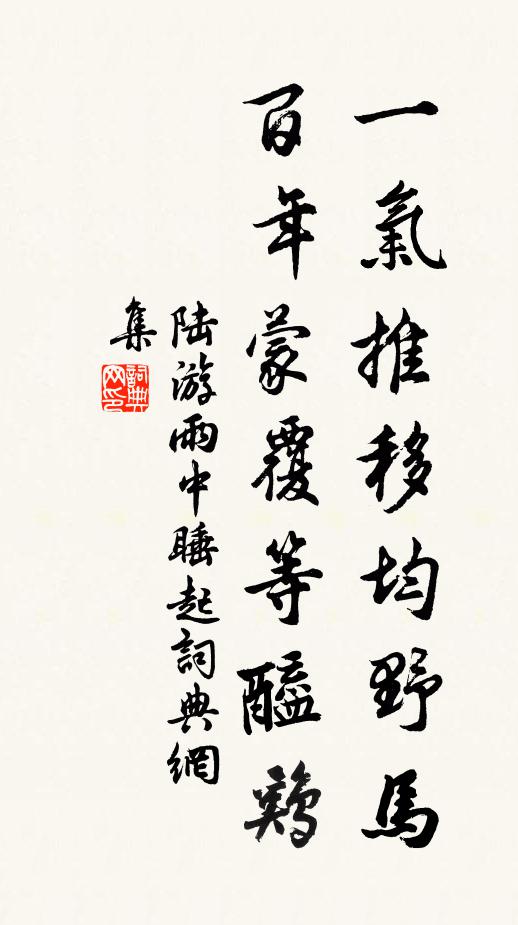 一氣推移均野馬
百年蒙覆等醯鷄
陸游雨中睡起詞典網
集
詞典
网印